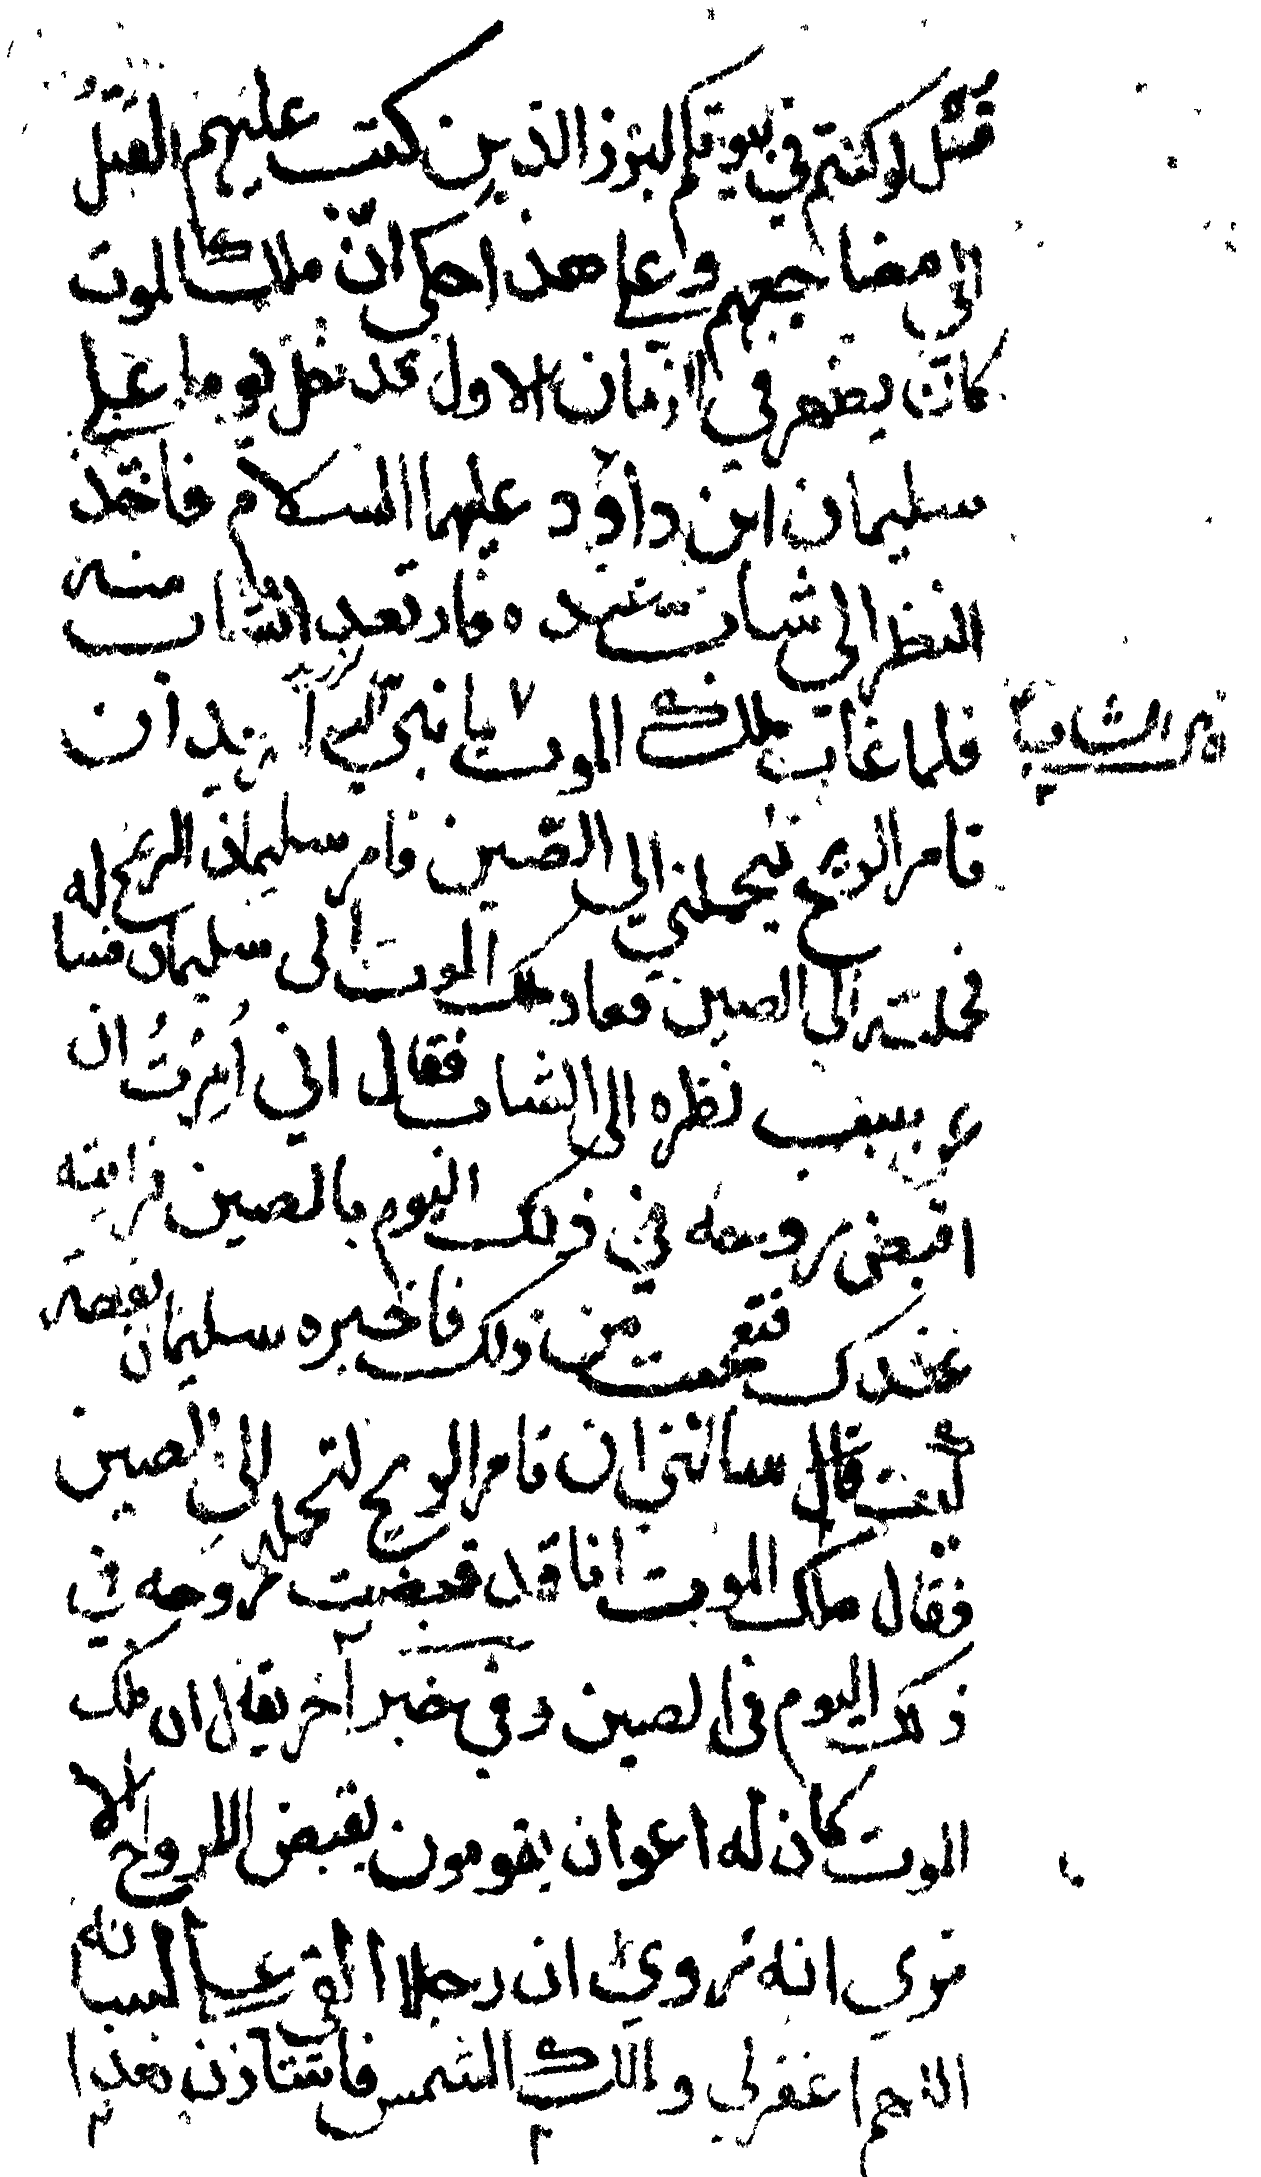 قل لو كنتم في بيوتكم لبرز الذين كتب عليهم القتل
الى مضاجعهم وعلى هذا حكى ان ملك الموت
كان يظهر في الزمان الاول فدخل يوما على
سليمان ابن داود عليهما السلام فاحد
النظر الى شاب عنده فارتعد الشاب منه
فلما غاب ملك الموت يا نبي الله اريد ان
قال الشاب
تامر الريح فيحملني الى الصين فامر سليمان الريح له
فحملته الى الصين فعاد ملك الموت الى سليمان فسا
عن سبب نظره الى الشاب فقال اني امرت ان
اقبض روحه في ذلك اليوم بالصين فرايته
عندك فتعجبت من ذلك فاخبره سليمان بقصته
كيف قال سالني ان تامر الريح لتحمله الى الصين
فقال ملك الموت انا قد قبضت روحه في
ذلك اليوم في الصين وفي خبر آخر يقال ان ملك
الموت كان له اعوان يقومون بقبض الارواح الا
تري انه روي ان رجلا القي على لسانه
اللهم اغفر لي ولملك الشمس فاستاذن هذا